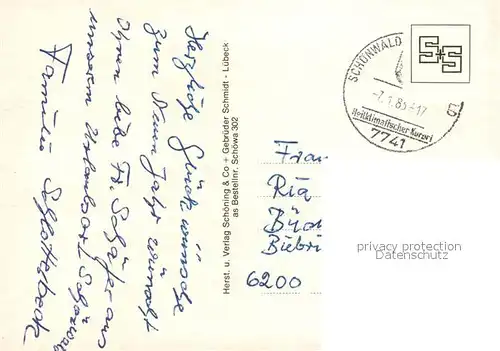 Herzliche Glückwünsche
zum Neuen Jahr wünscht
Ihnen liebe Fr. Schäfer aus
unserem Urlaubsort Schönwald
Familie
Herst. u. Verlag Schöning & Co + Gebrüder Schmidt - Lübeck
as Bestellnr. Schöwa 302
SCHÖNWALD
-7.1.85-17
Heilklimatischer Kurort
7741
S+S
Frau
Biebri
6200
privacy protection
Datenschutz